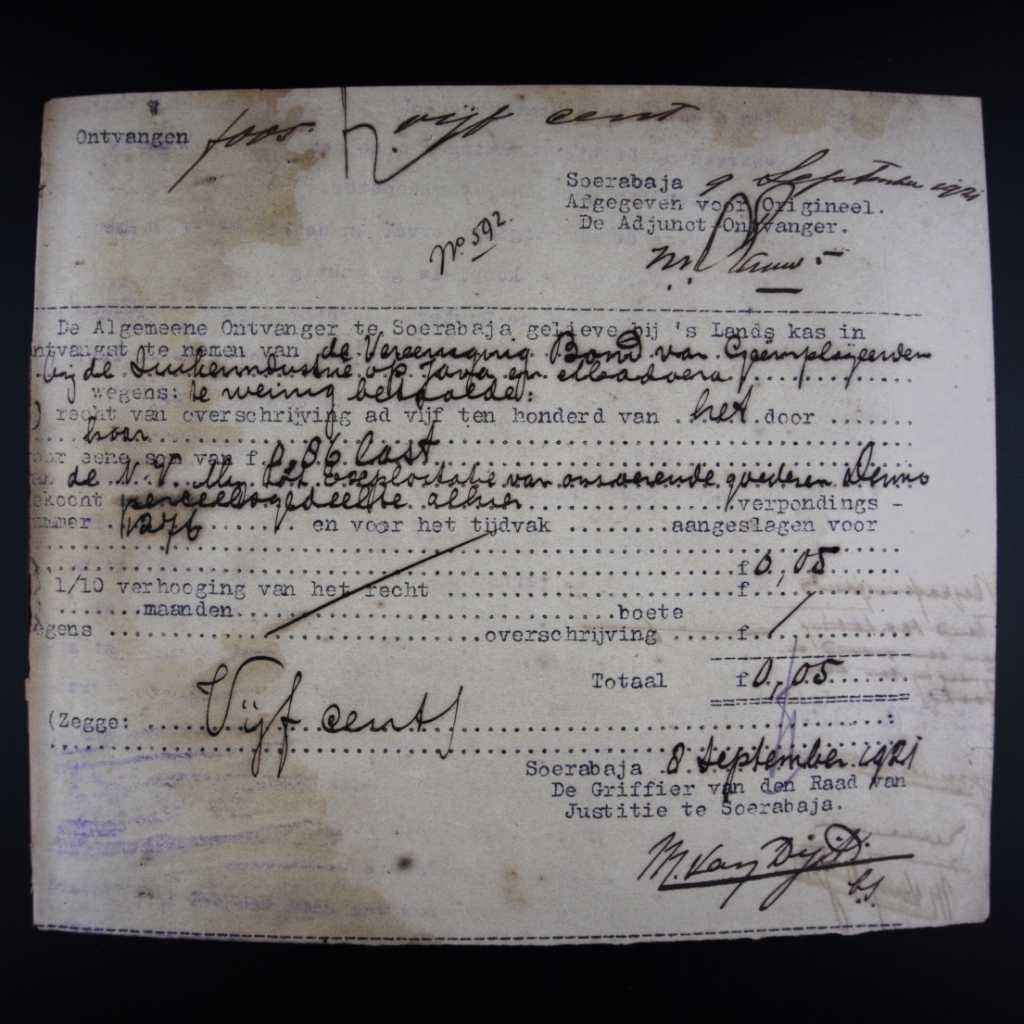 Ontvangen f 0.05. vijf cent
Soerabaja 9 September 1921
Afgegeven voor Origineel.
De Adjunct-Ontvanger.
No. 592.
De Algemeene Ontvanger te Soerabaja gelieve bij 's Lands kas in
ntvangst te nemen van de Vereeniging Bond van Geëmployeerden
bij de Suikerindustrie op Java en Madoera
wegens: te weinig betaalde:
) recht van overschrijving ad vijf ten honderd van het door
haar
or eene som van f. 0,86 last
an de N.V. My. tot Exploitatie van onroerende goederen Darmo
ekocht perceelsgedeelte alhier verpondings-
ummer 1276 en voor het tijdvak aangeslagen voor
f 0,05
) 1/10 verhooging van het recht f
maanden boete
egens overschrijving f
Totaal f 0,05
(Zegge: Vijf cent)
Soerabaja 8 September 1921
De Griffier van den Raad van
Justitie te Soerabaja.
M. van Dijk